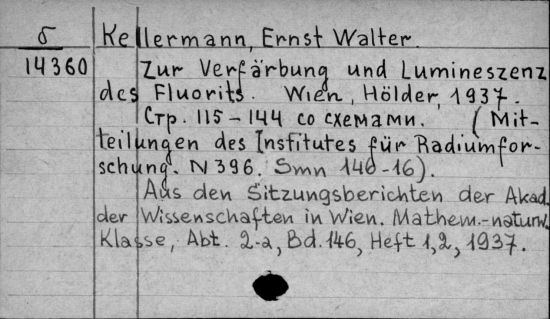 б Kellermann, Ernst Walter.
14360 Zur Verfärbung und Lumineszenz
des Fluorits. Wien, Hölder, 1937.
Стр. 115-144 со схемами. (Mit-
teilungen des Institutes für Radiumfor-
schung. N 396. Smn 146-16).
Aus den Sitzungsberichten der Akad.
der Wissenschaften in Wien. Mathem.-naturw.
Klasse, Abt. 2-a, Bd. 146, Heft 1,2, 1937.